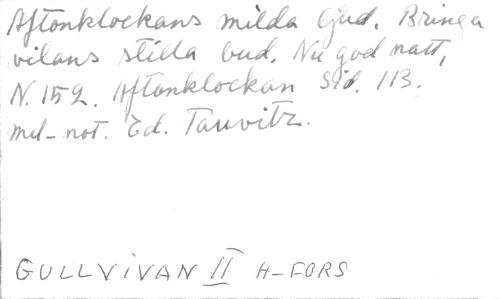 Aftonklockans milda ljud. Bringa
vilans stilla bud. Nu god natt,
N. 152. Aftonklockan Sid. 113.
mel-not. Ed. Tauvitz.
GULLVIVAN II H-FORS